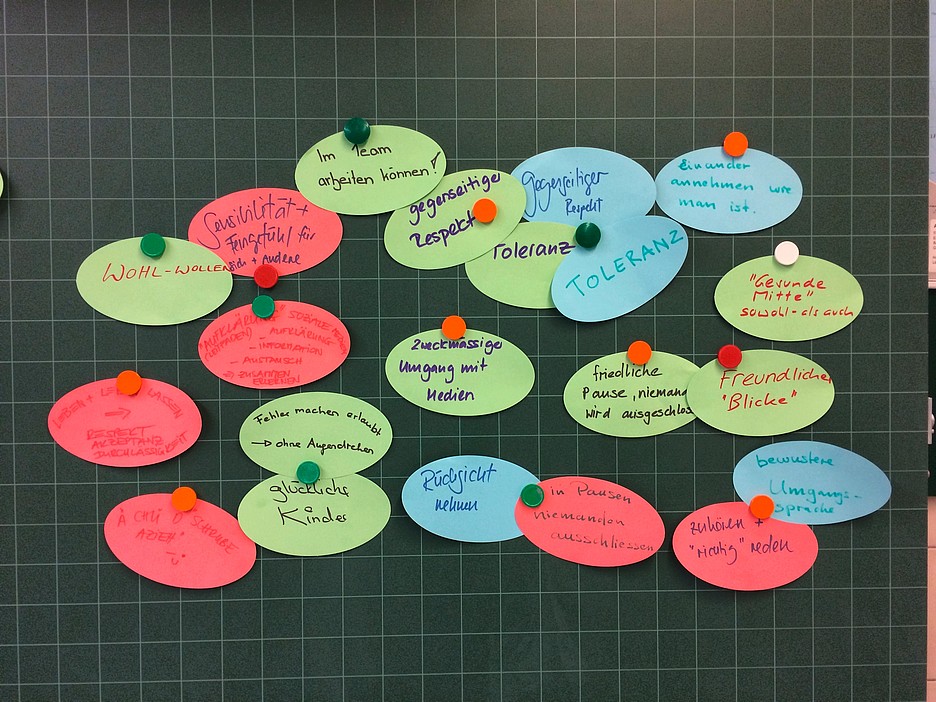 Im Team
arbeiten können!
gegenseitiger
Respekt
Gegenseitiger
Respekt
Einander
annehmen wie
man ist.
Sensibilität +
Feingefühl für
sich + Andere
WOHL-WOLLEN
Toleranz
TOLERANZ
"Gesunde
Mitte"
sowohl-als auch
"AUFKLÄRUNG" SOZIALE
AUFKLÄRUNG
- INFORMATION
- AUSTAUSCH
→ ZUSAMMEN
Zweckmässiger
Umgang mit
Medien
friedliche
Pause, niemand
wird ausgeschlos
freundliche
"Blicke"
LEBEN + LEBEN LASSEN
→
RESPEKT
AKZEPTANZ
DURCHLÄSSIGKEIT
Fehler machen erlaubt
→ ohne Augendrehen
glückliche
Kinder
Rücksicht
nehmen
in Pausen
niemanden
ausschliessen
bewusstere
Umgangs-
sprache
zuhören +
"richtig" reden
Ä CHLI D SCHRUBE
AZIEH"